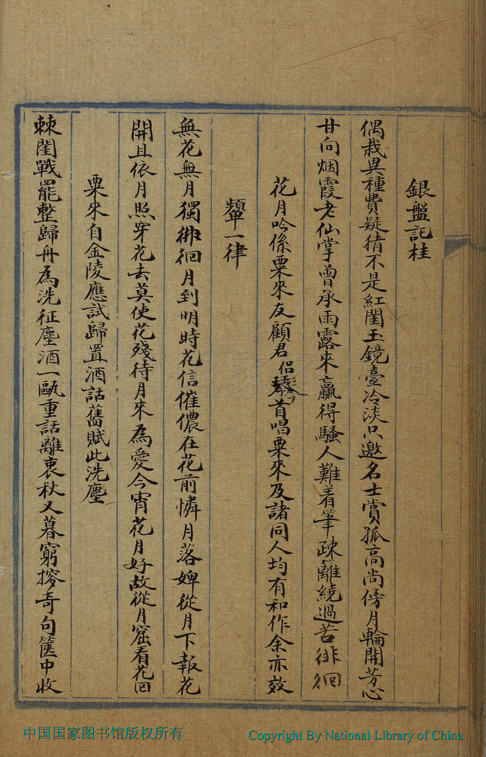 銀盤託桂
偶栽異種費疑猜不是紅閨玉鏡臺冷淡只邀名士賞孤高尚傍月輪開芳心
甘向烟霞老仙掌曾承雨露來贏得騷人難着筆疎籬繞過苦徘徊
花月吟係粟來友顧君侶琴首唱粟來及諸同人均有和作余亦效
顰一律
無花無月獨徘徊月到明時花信催儂在花前憐月落婢從月下報花
開且依月照穿花去莫使花殘待月來為愛今宵花月好故從月窟看花回
粟來自金陵應試歸置酒話舊賦此洗塵
棘闈戰罷整歸舟為洗征塵酒一甌重話離衷秋又暮窮搜奇句篋中收
中国国家图书馆版权所有
Copyright By National Library of China